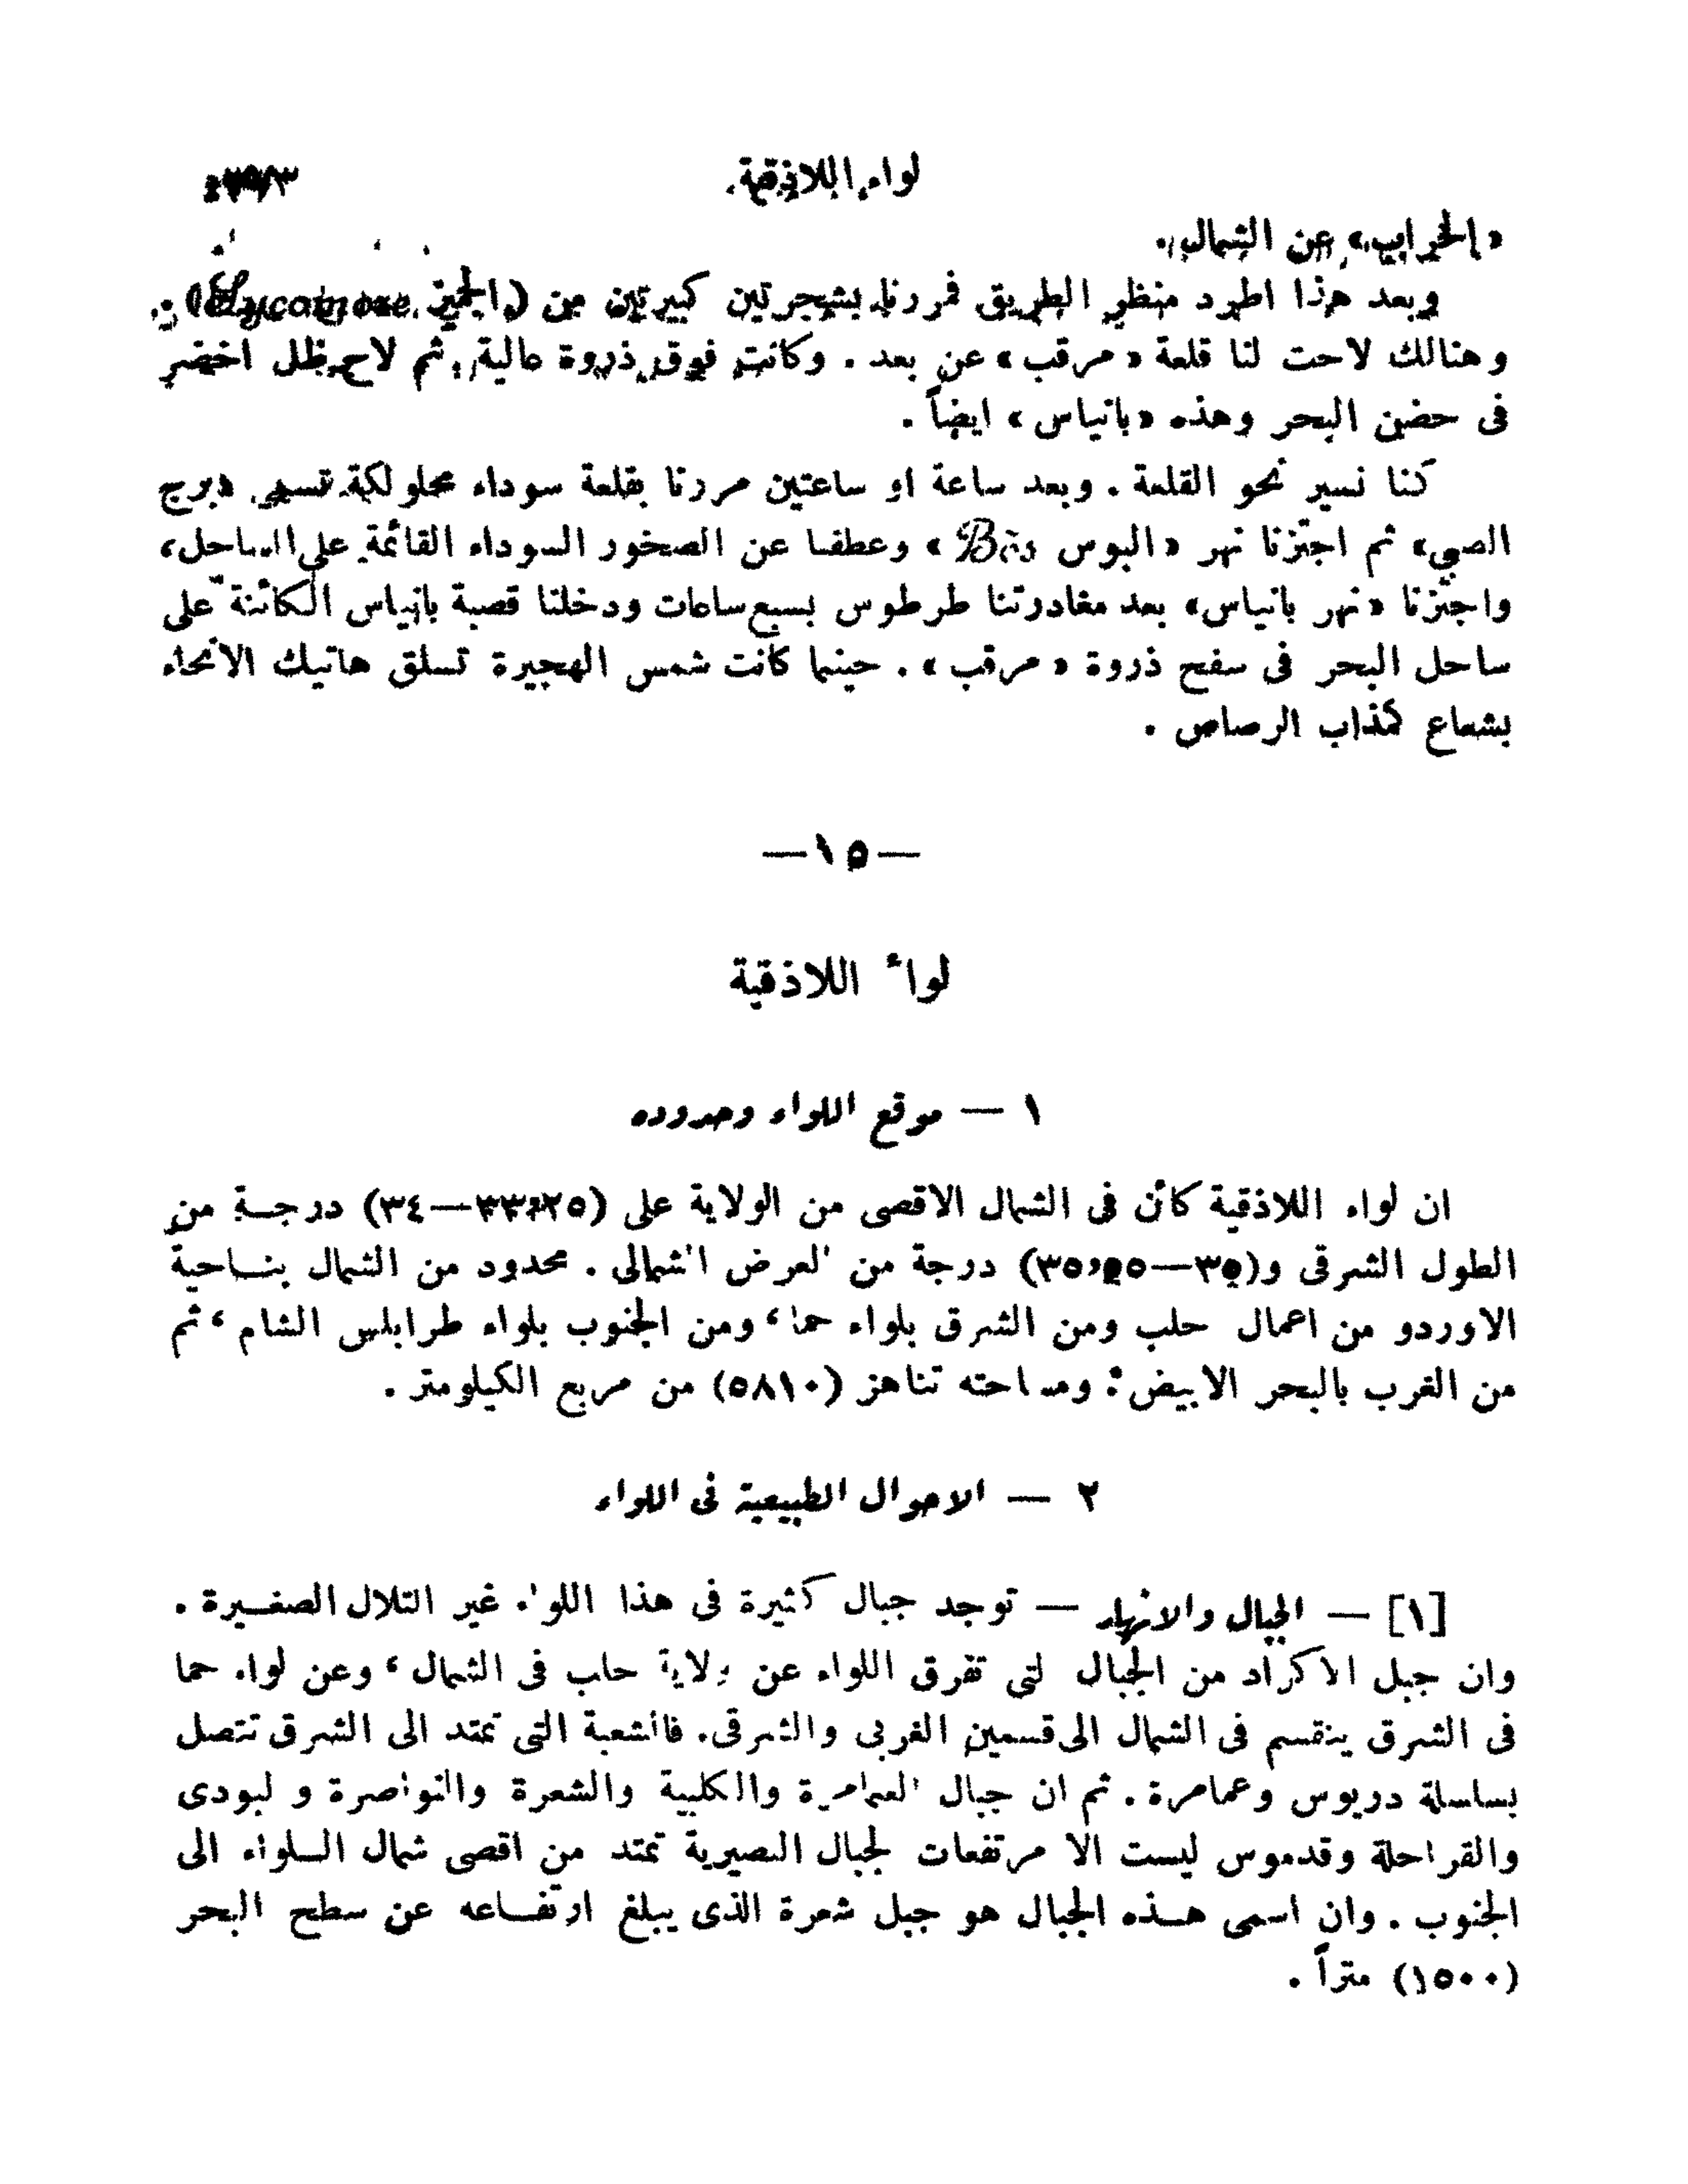 لواء اللاذقية
«الخراب» عن الشمال.
وبعد هذا اطرد منظر الطريق فمررنا بشجرتين كبيرتين من (الجميز Sycomore).
وهنالك لاحت لنا قلعة «مرقب» عن بعد. وكانت فوق ذروة عالية، ثم لاح ظل اخضر
فى حضن البحر وهذه «بانياس» ايضاً.
كنا نسير نحو القلعة. وبعد ساعة او ساعتين مررنا بقلعة سوداء محلولكة تسمى «برج
الصبي» ثم اجتزنا نهر «البوس Bòs» وعطفنا عن الصخور السوداء القائمة على الساحل،
واجتزنا «نهر بانياس» بعد مغادرتنا طرطوس بسبع ساعات ودخلنا قصبة بانياس الكائنة على
ساحل البحر فى سفح ذروة «مرقب». حينما كانت شمس الهجيرة تسلق هاتيك الانحاء
بشعاع كمذاب الرصاص.
—١٥—
لواء اللاذقية
١ — موقع اللواء وحدوده
ان لواء اللاذقية كائن فى الشمال الاقصى من الولاية على (٣٣،٢٥—٣٤) درجة من
الطول الشرقى و(٣٥—٣٥،٥٥) درجة من العرض الشمالى. محدود من الشمال بناحية
الاوردو من اعمال حلب ومن الشرق بلواء حما، ومن الجنوب بلواء طرابلس الشام، ثم
من الغرب بالبحر الابيض: ومساحته تناهز (٥٨١٠) من مربع الكيلومتر.
٢ — الاحوال الطبيعية فى اللواء
[١] — الجبال والانهار — توجد جبال كثيرة فى هذا اللواء غير التلال الصغيرة.
وان جبل الاكراد من الجبال التى تفرق اللواء عن ولاية حلب فى الشمال، وعن لواء حما
فى الشرق ينقسم فى الشمال الى قسمين الغربى والشرقى. فالشعبة التى تمتد الى الشرق تتصل
بسلسلة دريوس وعمامرة. ثم ان جبال العمامرة والكلبية والشعرة والنواصرة و لبودى
والقراحلة وقدموس ليست الا مرتفعات لجبال النصيرية تمتد من اقصى شمال اللواء الى
الجنوب. وان اسمى هذه الجبال هو جبل شعرة الذى يبلغ ارتفاعه عن سطح البحر
(١٥٠٠) متراً.